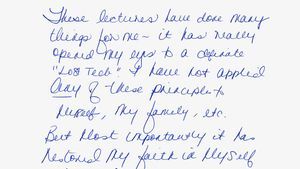 These lectures have done many
things for me - it has really
opened my eyes to a definate
I have not applied
any of these principles to
myself, my family, etc.
But most importantly it has
restored my faith in myself